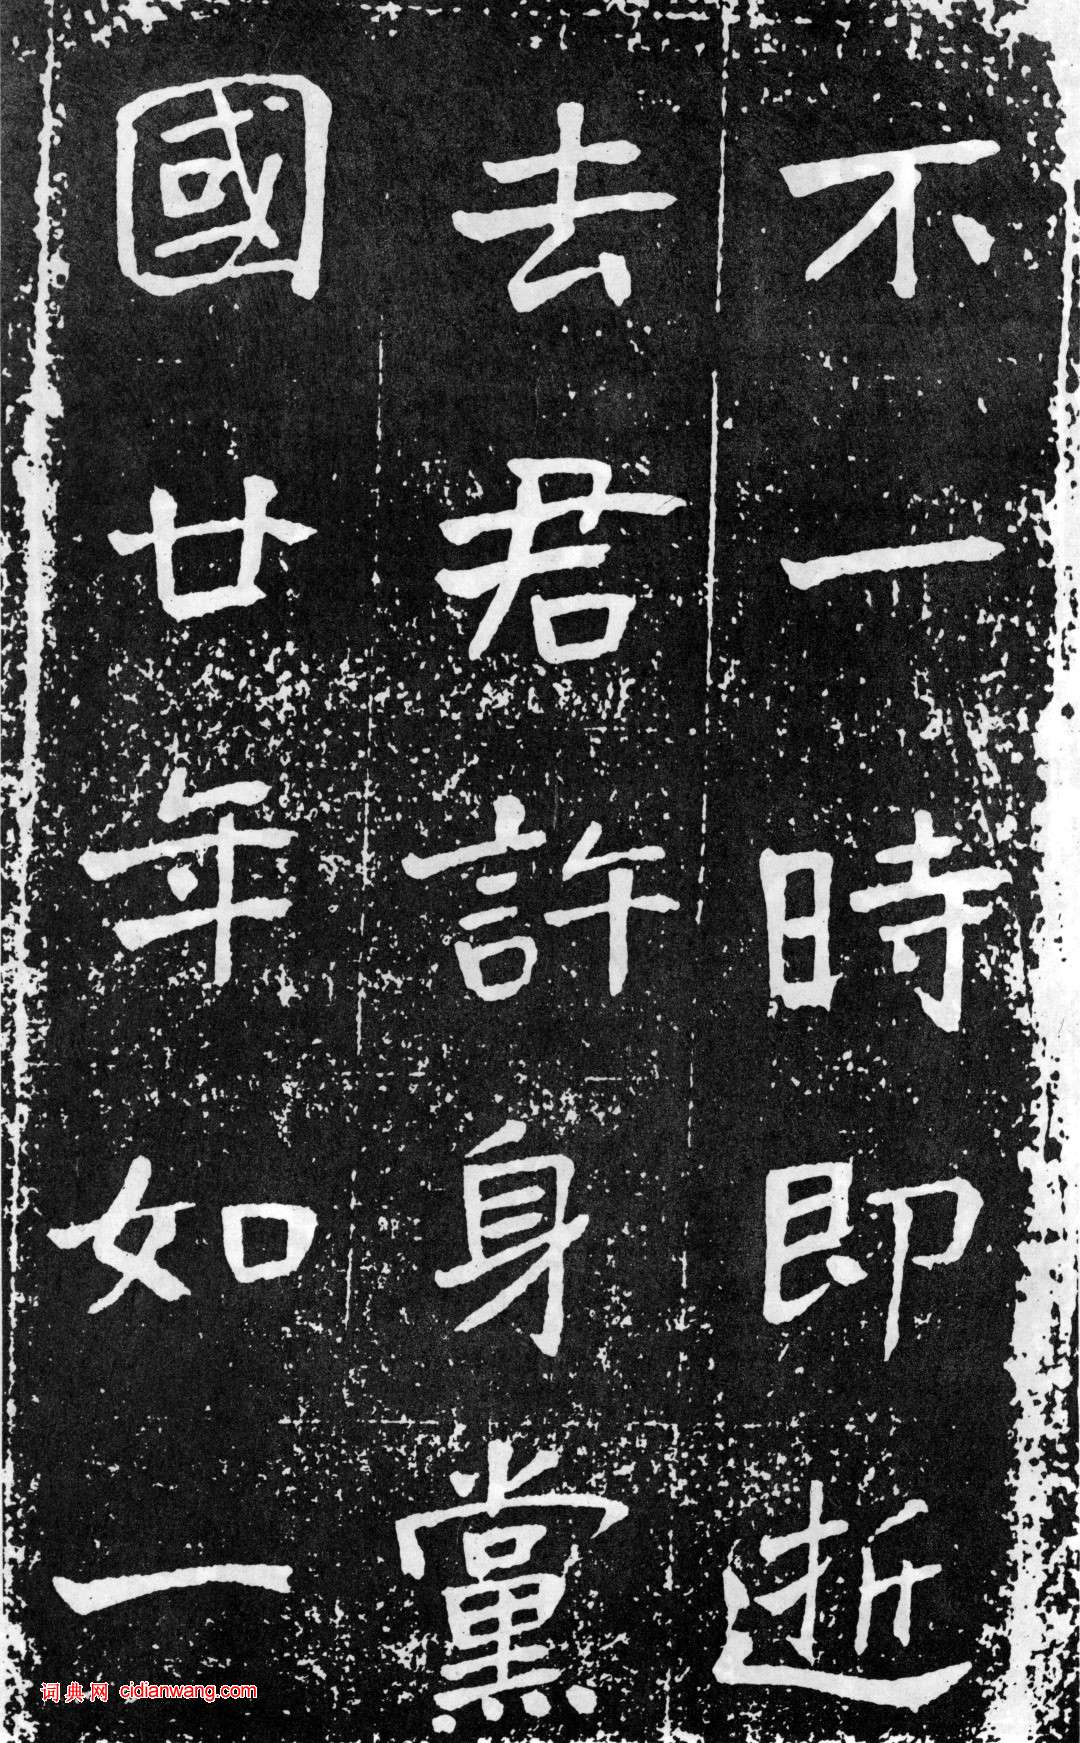 不一時即逝
去君許身黨
國廿年如一
词典网 cidianwang.com